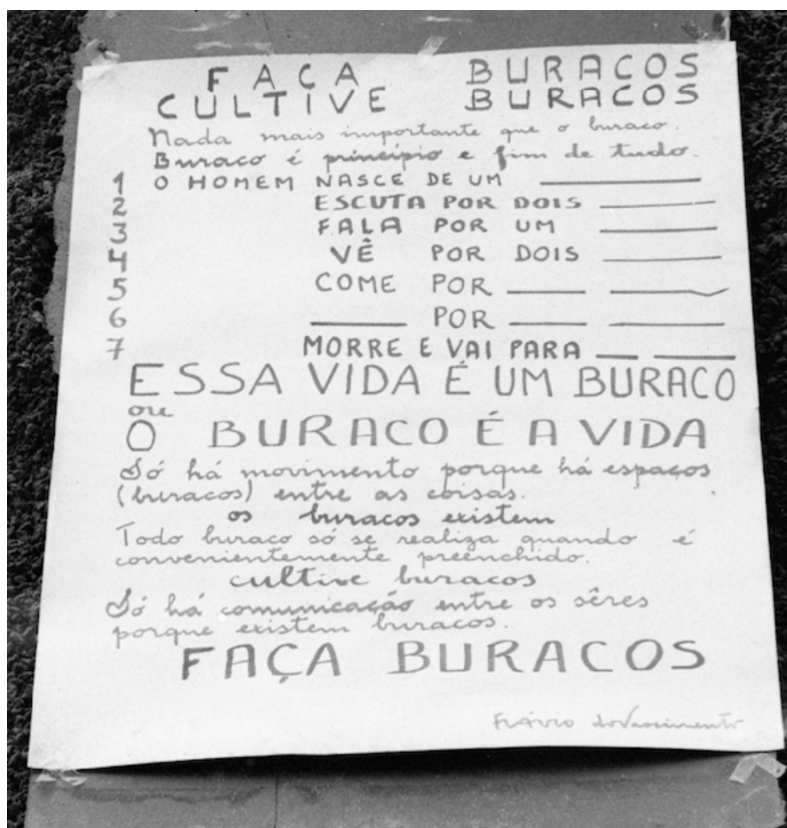 FAÇA BURACOS
CULTIVE BURACOS
Nada mais importante que o buraco.
Buraco é princípio e fim de tudo.
1 O HOMEM NASCE DE UM ______
2 ESCUTA POR DOIS ______
3 FALA POR UM ______
4 VÊ POR DOIS ______
5 COME POR ______ ______
6 ______ POR ______ ______
7 MORRE E VAI PARA ___ ______
ESSA VIDA É UM BURACO
ou
O BURACO É A VIDA
Só há movimento porque há espaços
(buracos) entre as coisas.
os buracos existem
Todo buraco só se realiza quando é
convenientemente preenchido.
cultive buracos
Só há comunicação entre os sêres
porque existem buracos.
FAÇA BURACOS
Flávio do Nascimento